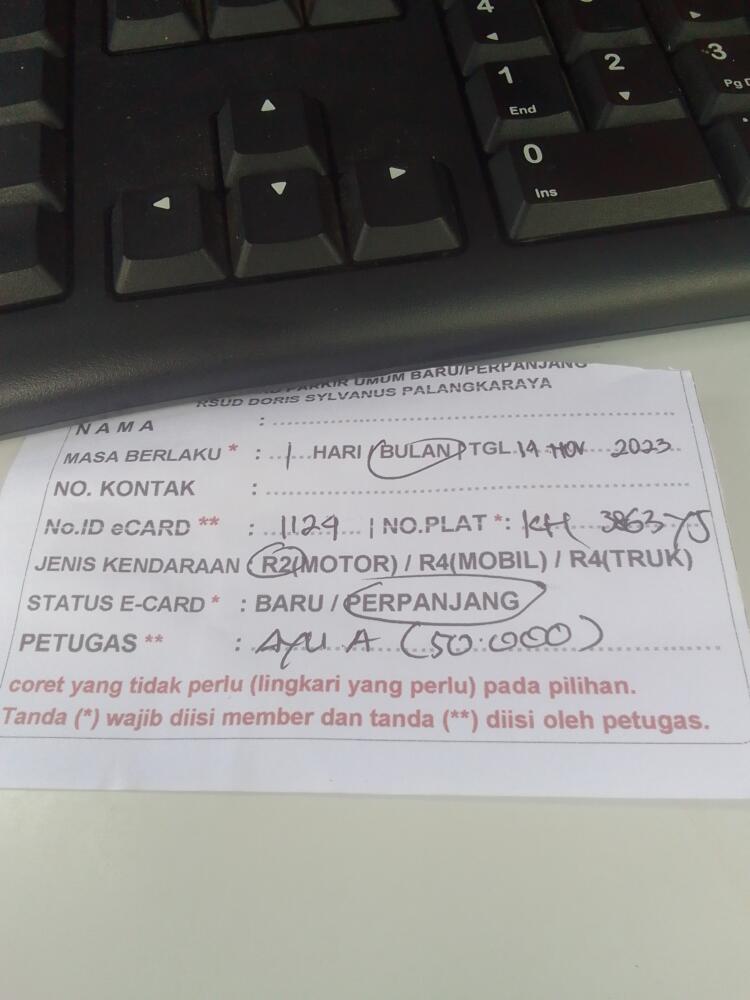 4
1
End
2
3
Pg D
0
Ins
PARKIR UMUM BARU/PERPANJANG
RSUD DORIS SYLVANUS PALANGKARAYA
NAMA :
MASA BERLAKU * : 1 HARI / BULAN / TGL 14 NOV 2023
NO. KONTAK :
No.ID eCARD ** : 1124 | NO.PLAT *: KH 3863 YJ
JENIS KENDARAAN : R2(MOTOR) / R4(MOBIL) / R4(TRUK)
STATUS E-CARD * : BARU / PERPANJANG
PETUGAS ** : AYU A (50.000)
coret yang tidak perlu (lingkari yang perlu) pada pilihan.
Tanda (*) wajib diisi member dan tanda (**) diisi oleh petugas.